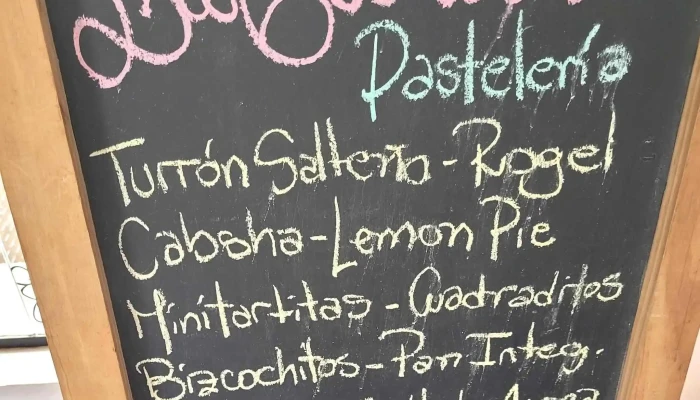 Pastelería
Turrón Salteño - Rogel
Cabsha - Lemon Pie
Minitartitas - Cuadraditos
Bizcochitos - Pan Integ.